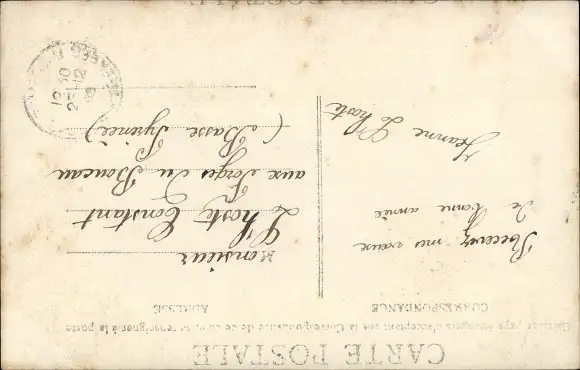 CARTE POSTALE
pays étrangers n'acceptent pas la Correspondance de se renseigner à la poste
CORRESPONDANCE
ADRESSE
Recevez mes vœux
de bonne année
Jeanne L'hoste
Monsieur
L'hoste Constant
aux Forges du Boucau
(Basse Pyrénée)
12 30
29 12
CARTE POSTALE